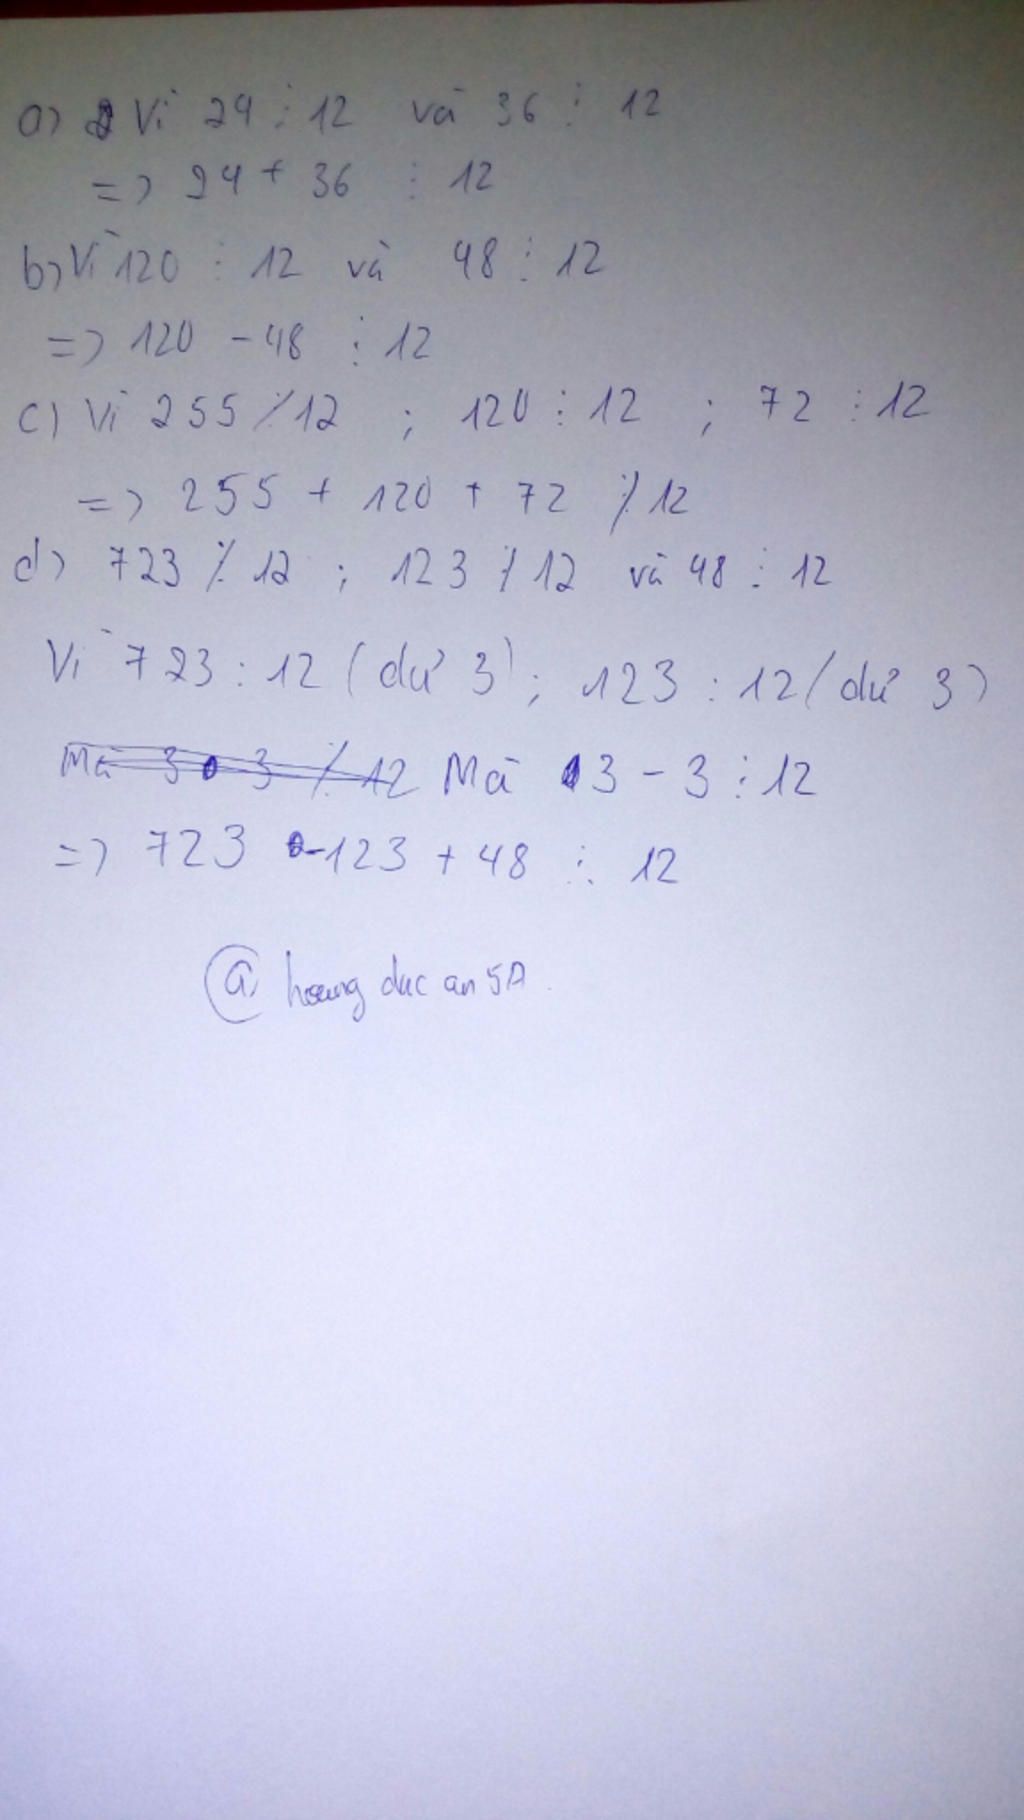 a) Vì 24 ⋮ 12 và 36 ⋮ 12
=> 24 + 36 ⋮ 12
b) Vì 120 ⋮ 12 và 48 ⋮ 12
=> 120 - 48 ⋮ 12
c) Vì 255 ⋮̸ 12 ; 120 ⋮ 12 ; 72 ⋮ 12
=> 255 + 120 + 72 ⋮̸ 12
d) 723 ⋮̸ 12 ; 123 ⋮̸ 12 và 48 ⋮ 12
Vì 723 : 12 (dư 3) ; 123 : 12 (dư 3)
Mà 3 - 3 ⋮ 12
=> 723 - 123 + 48 ⋮ 12
@ hoang duc an 5A